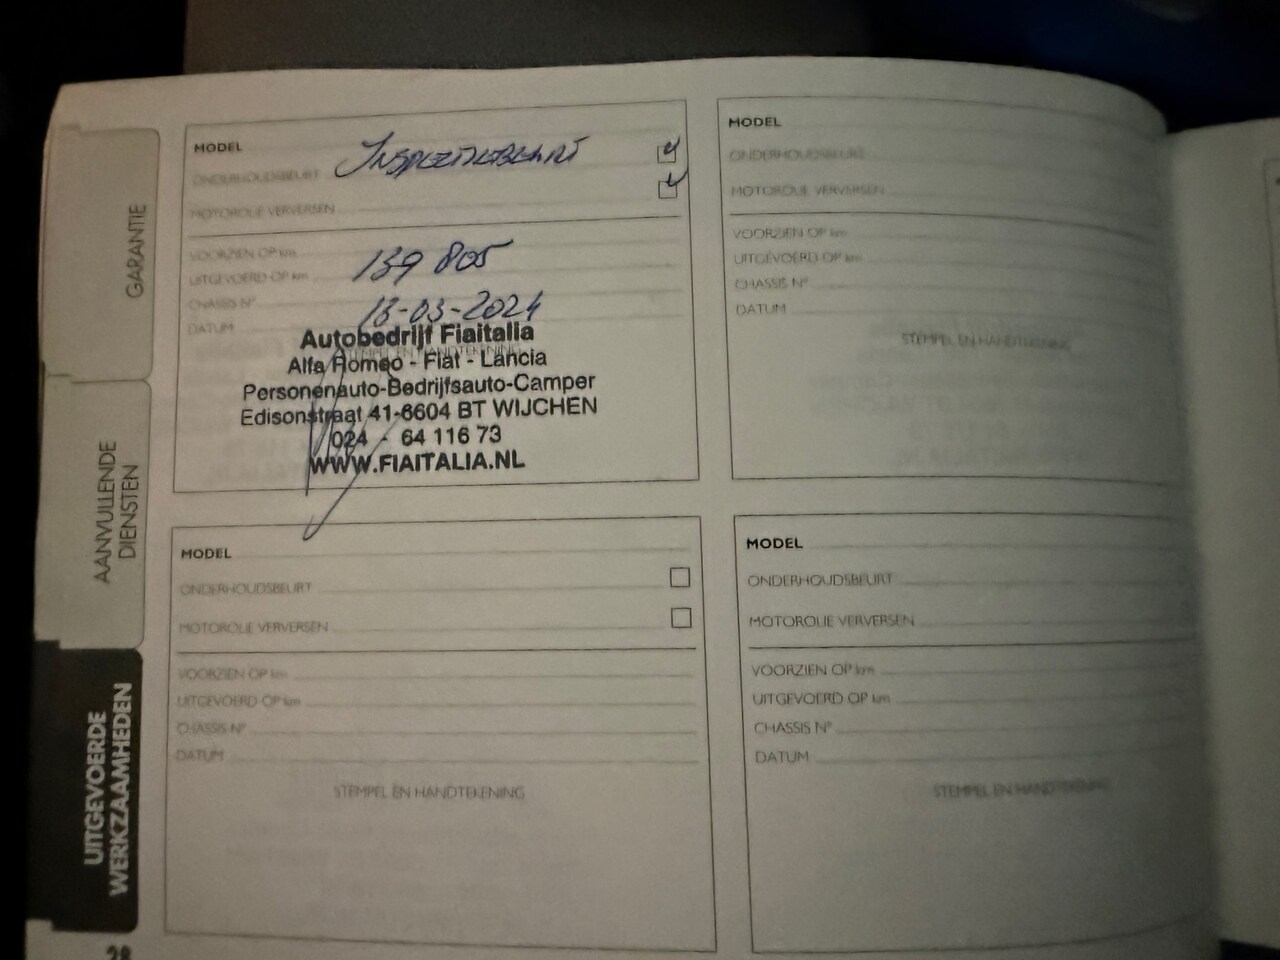 GARANTIE
AANVULLENDE
DIENSTEN
UITGEVOERDE
WERKZAAMHEDEN
28
MODEL
ONDERHOUDSBEURT Inspectiebeurt
MOTOROLIE VERVERSEN
VOORZIEN OP km
UITGEVOERD OP km 139 805
CHASSIS N°
DATUM 13-03-2024
STEMPEL EN HANDTEKENING
Autobedrijf Fiaitalia
Alfa Romeo - Fiat - Lancia
Personenauto-Bedrijfsauto-Camper
Edisonstraat 41-6604 BT WIJCHEN
024 - 64 116 73
WWW.FIAITALIA.NL
MODEL
ONDERHOUDSBEURT
MOTOROLIE VERVERSEN
VOORZIEN OP km
UITGEVOERD OP km
CHASSIS N°
DATUM
STEMPEL EN HANDTEKENING
MODEL
ONDERHOUDSBEURT
MOTOROLIE VERVERSEN
VOORZIEN OP km
UITGEVOERD OP km
CHASSIS N°
DATUM
STEMPEL EN HANDTEKENING
MODEL
ONDERHOUDSBEURT
MOTOROLIE VERVERSEN
VOORZIEN OP km
UITGEVOERD OP km
CHASSIS N°
DATUM
STEMPEL EN HANDTEKENING